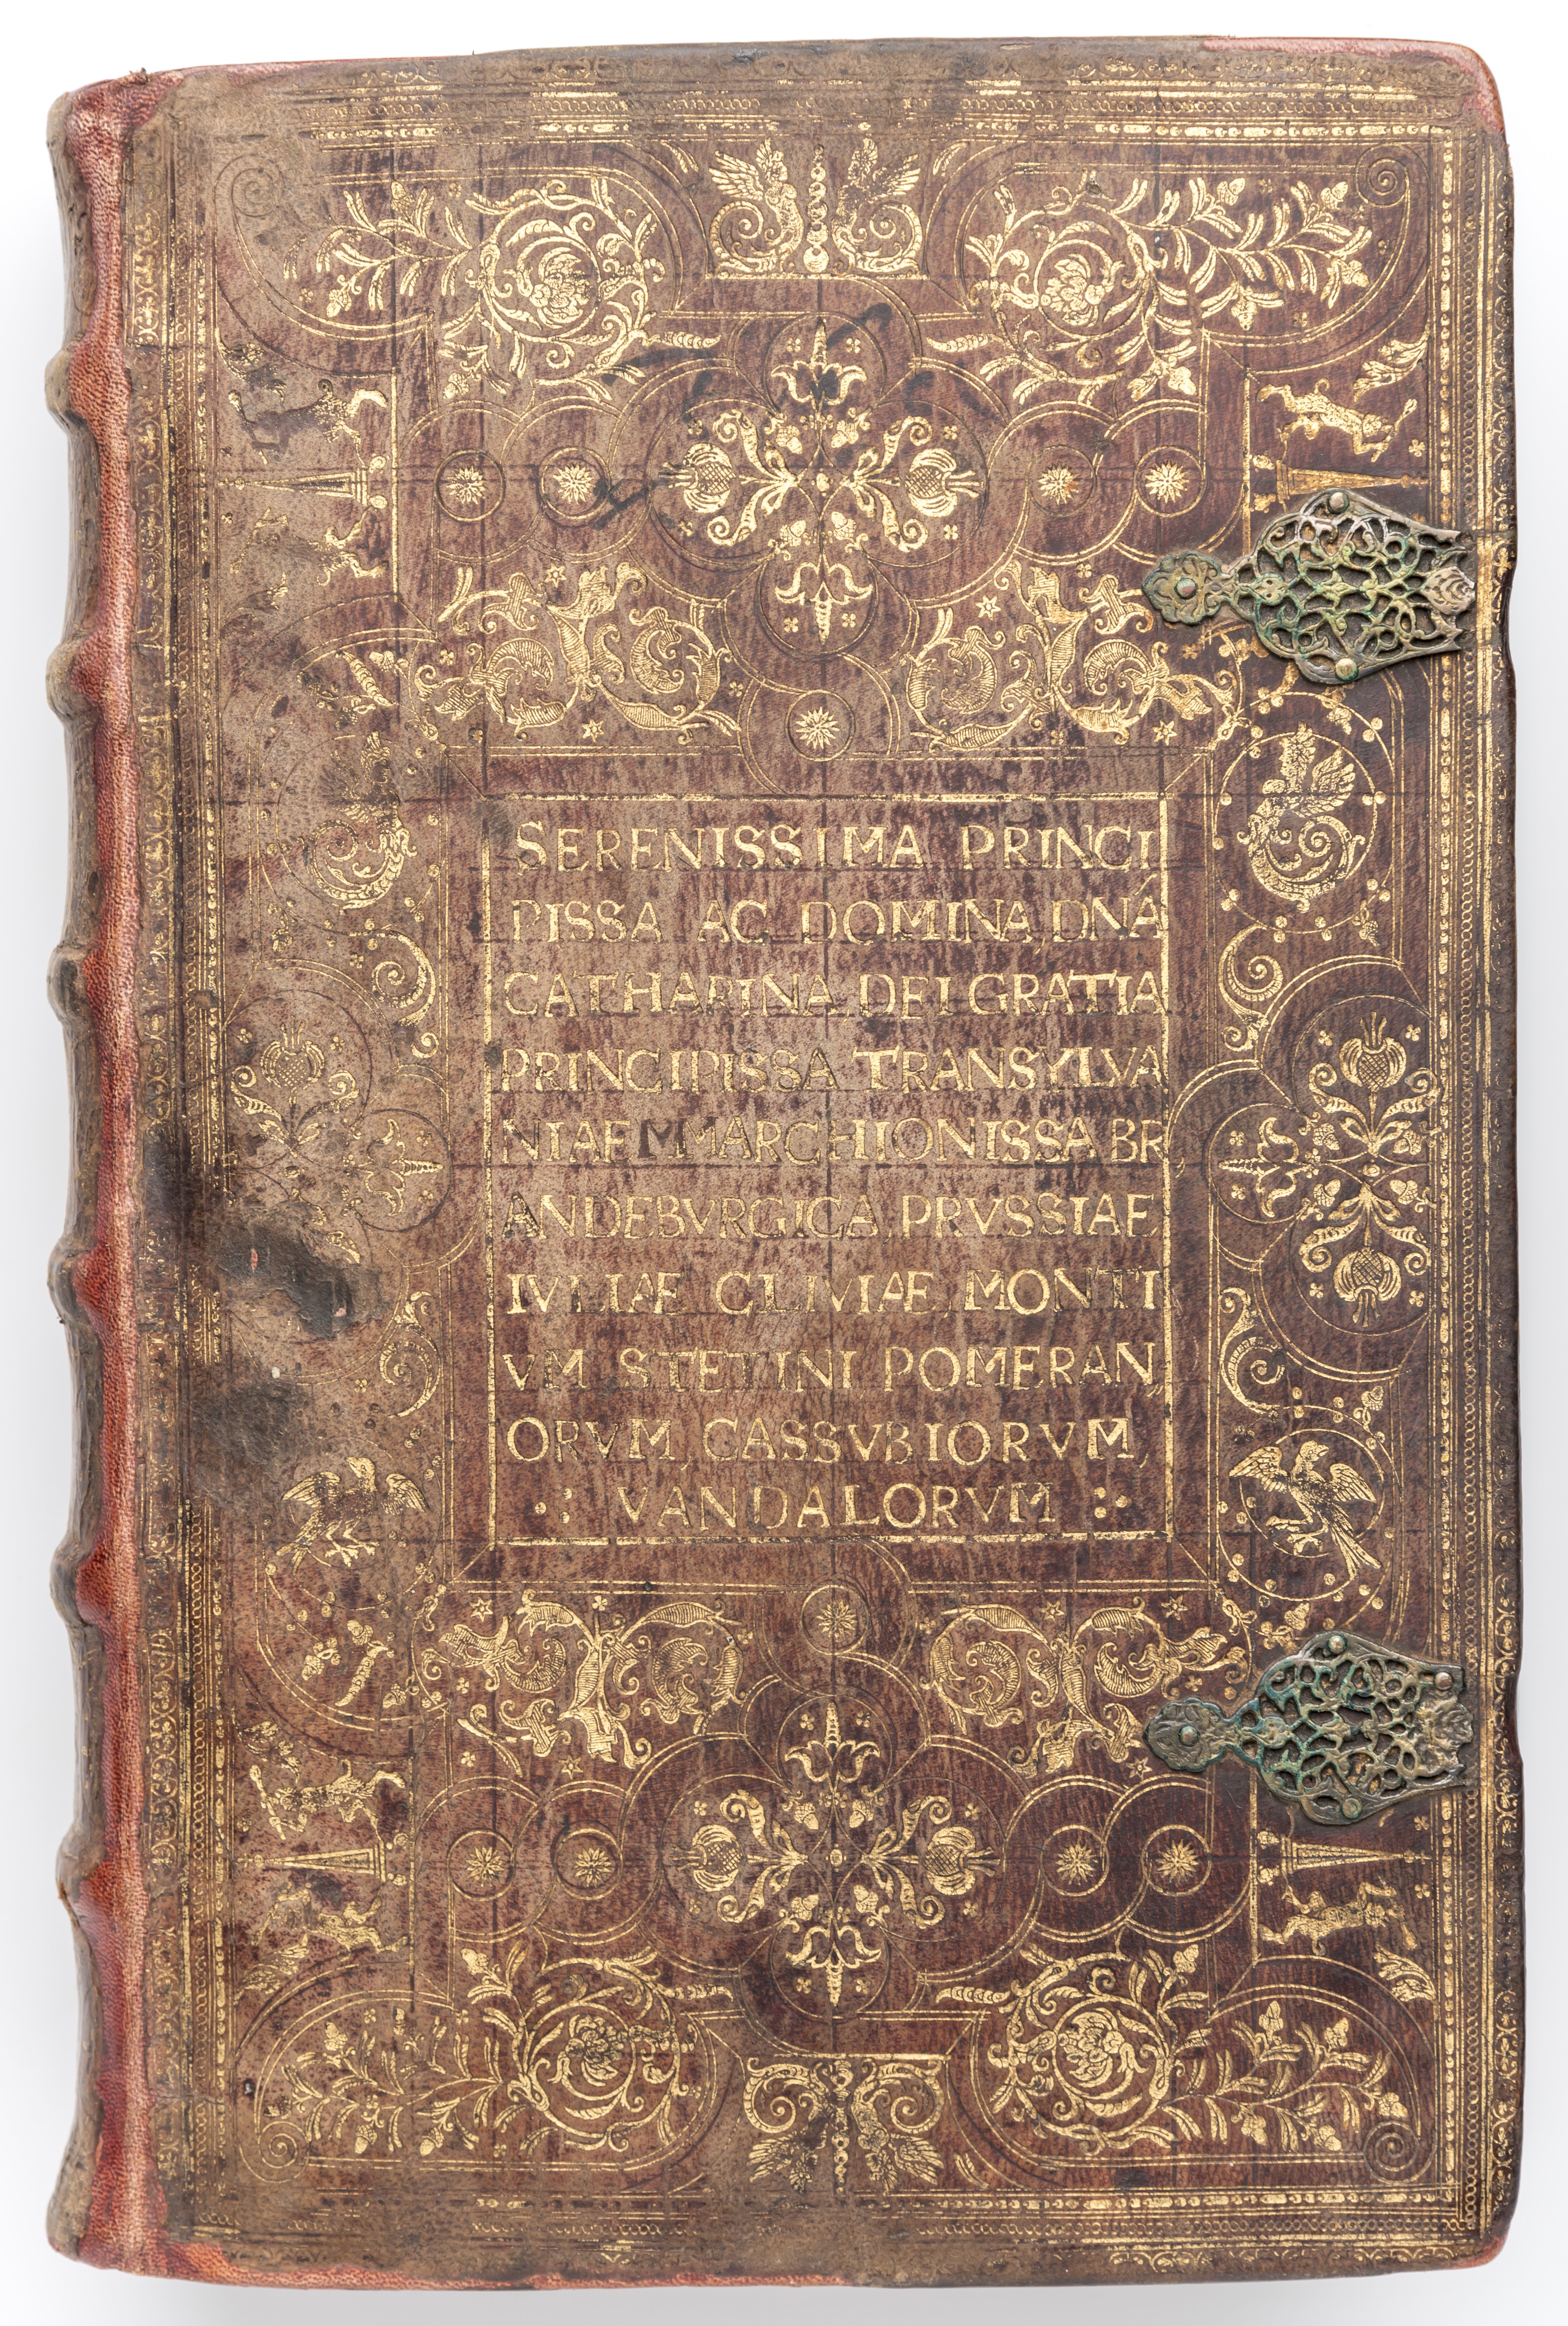 SERENISSIMA PRINCI
PISSA AC DOMINA, DNÁ
CATHARINA DEI GRATIA
PRINCIPISSA TRANSYLVA
NIAE MMARCHIONISSA BR,
ANDEBVRGICA, PRVSSIAE
IVLIÆ CLIVIÆ, MONTI
VM STETINI POMERAN,
ORVM, CASSVBIORVM,
VANDALORVM